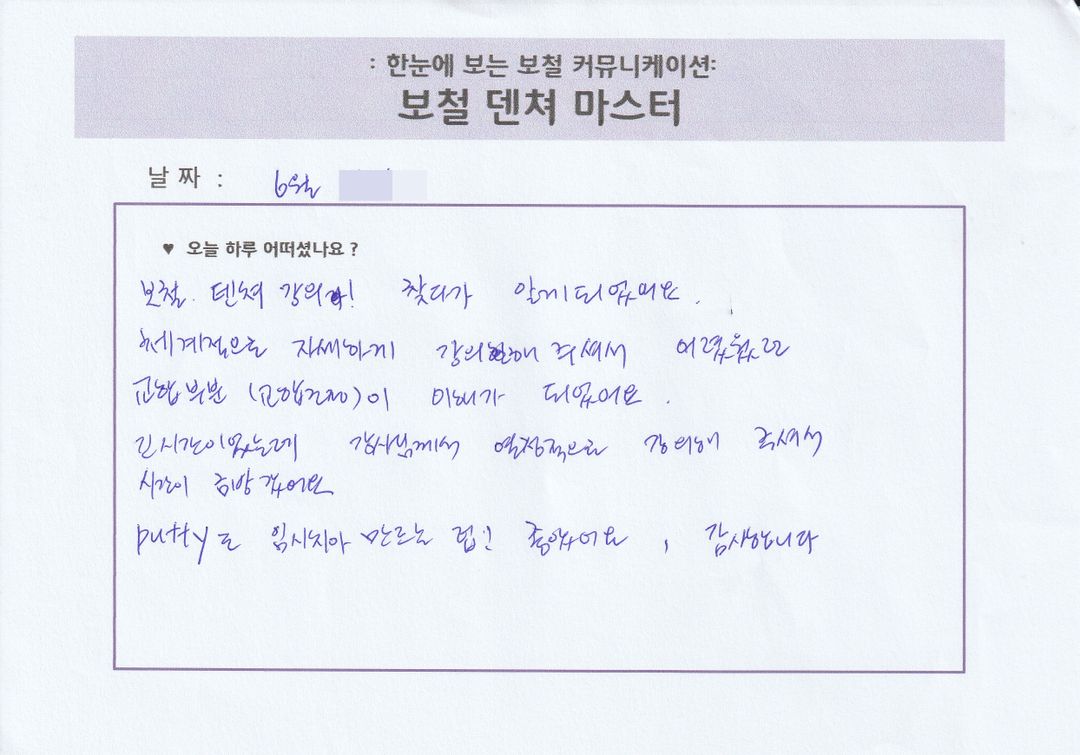 : 한눈에 보는 보철 커뮤니케이션:
보철 덴쳐 마스터
날 짜 : 6월
♥ 오늘 하루 어떠셨나요 ?
보철. 덴쳐 강의! 찾다가 알게되었어요.
체계적으로 자세하게 강의해 주셔서 어려웠던
교합부분 (교합조정)이 이해가 되었어요.
긴시간이었는데 강사님께서 열정적으로 강의해 주셔서
시간이 금방 갔어요
putty로 임시치아 만드는 팁! 좋았어요, 감사합니다